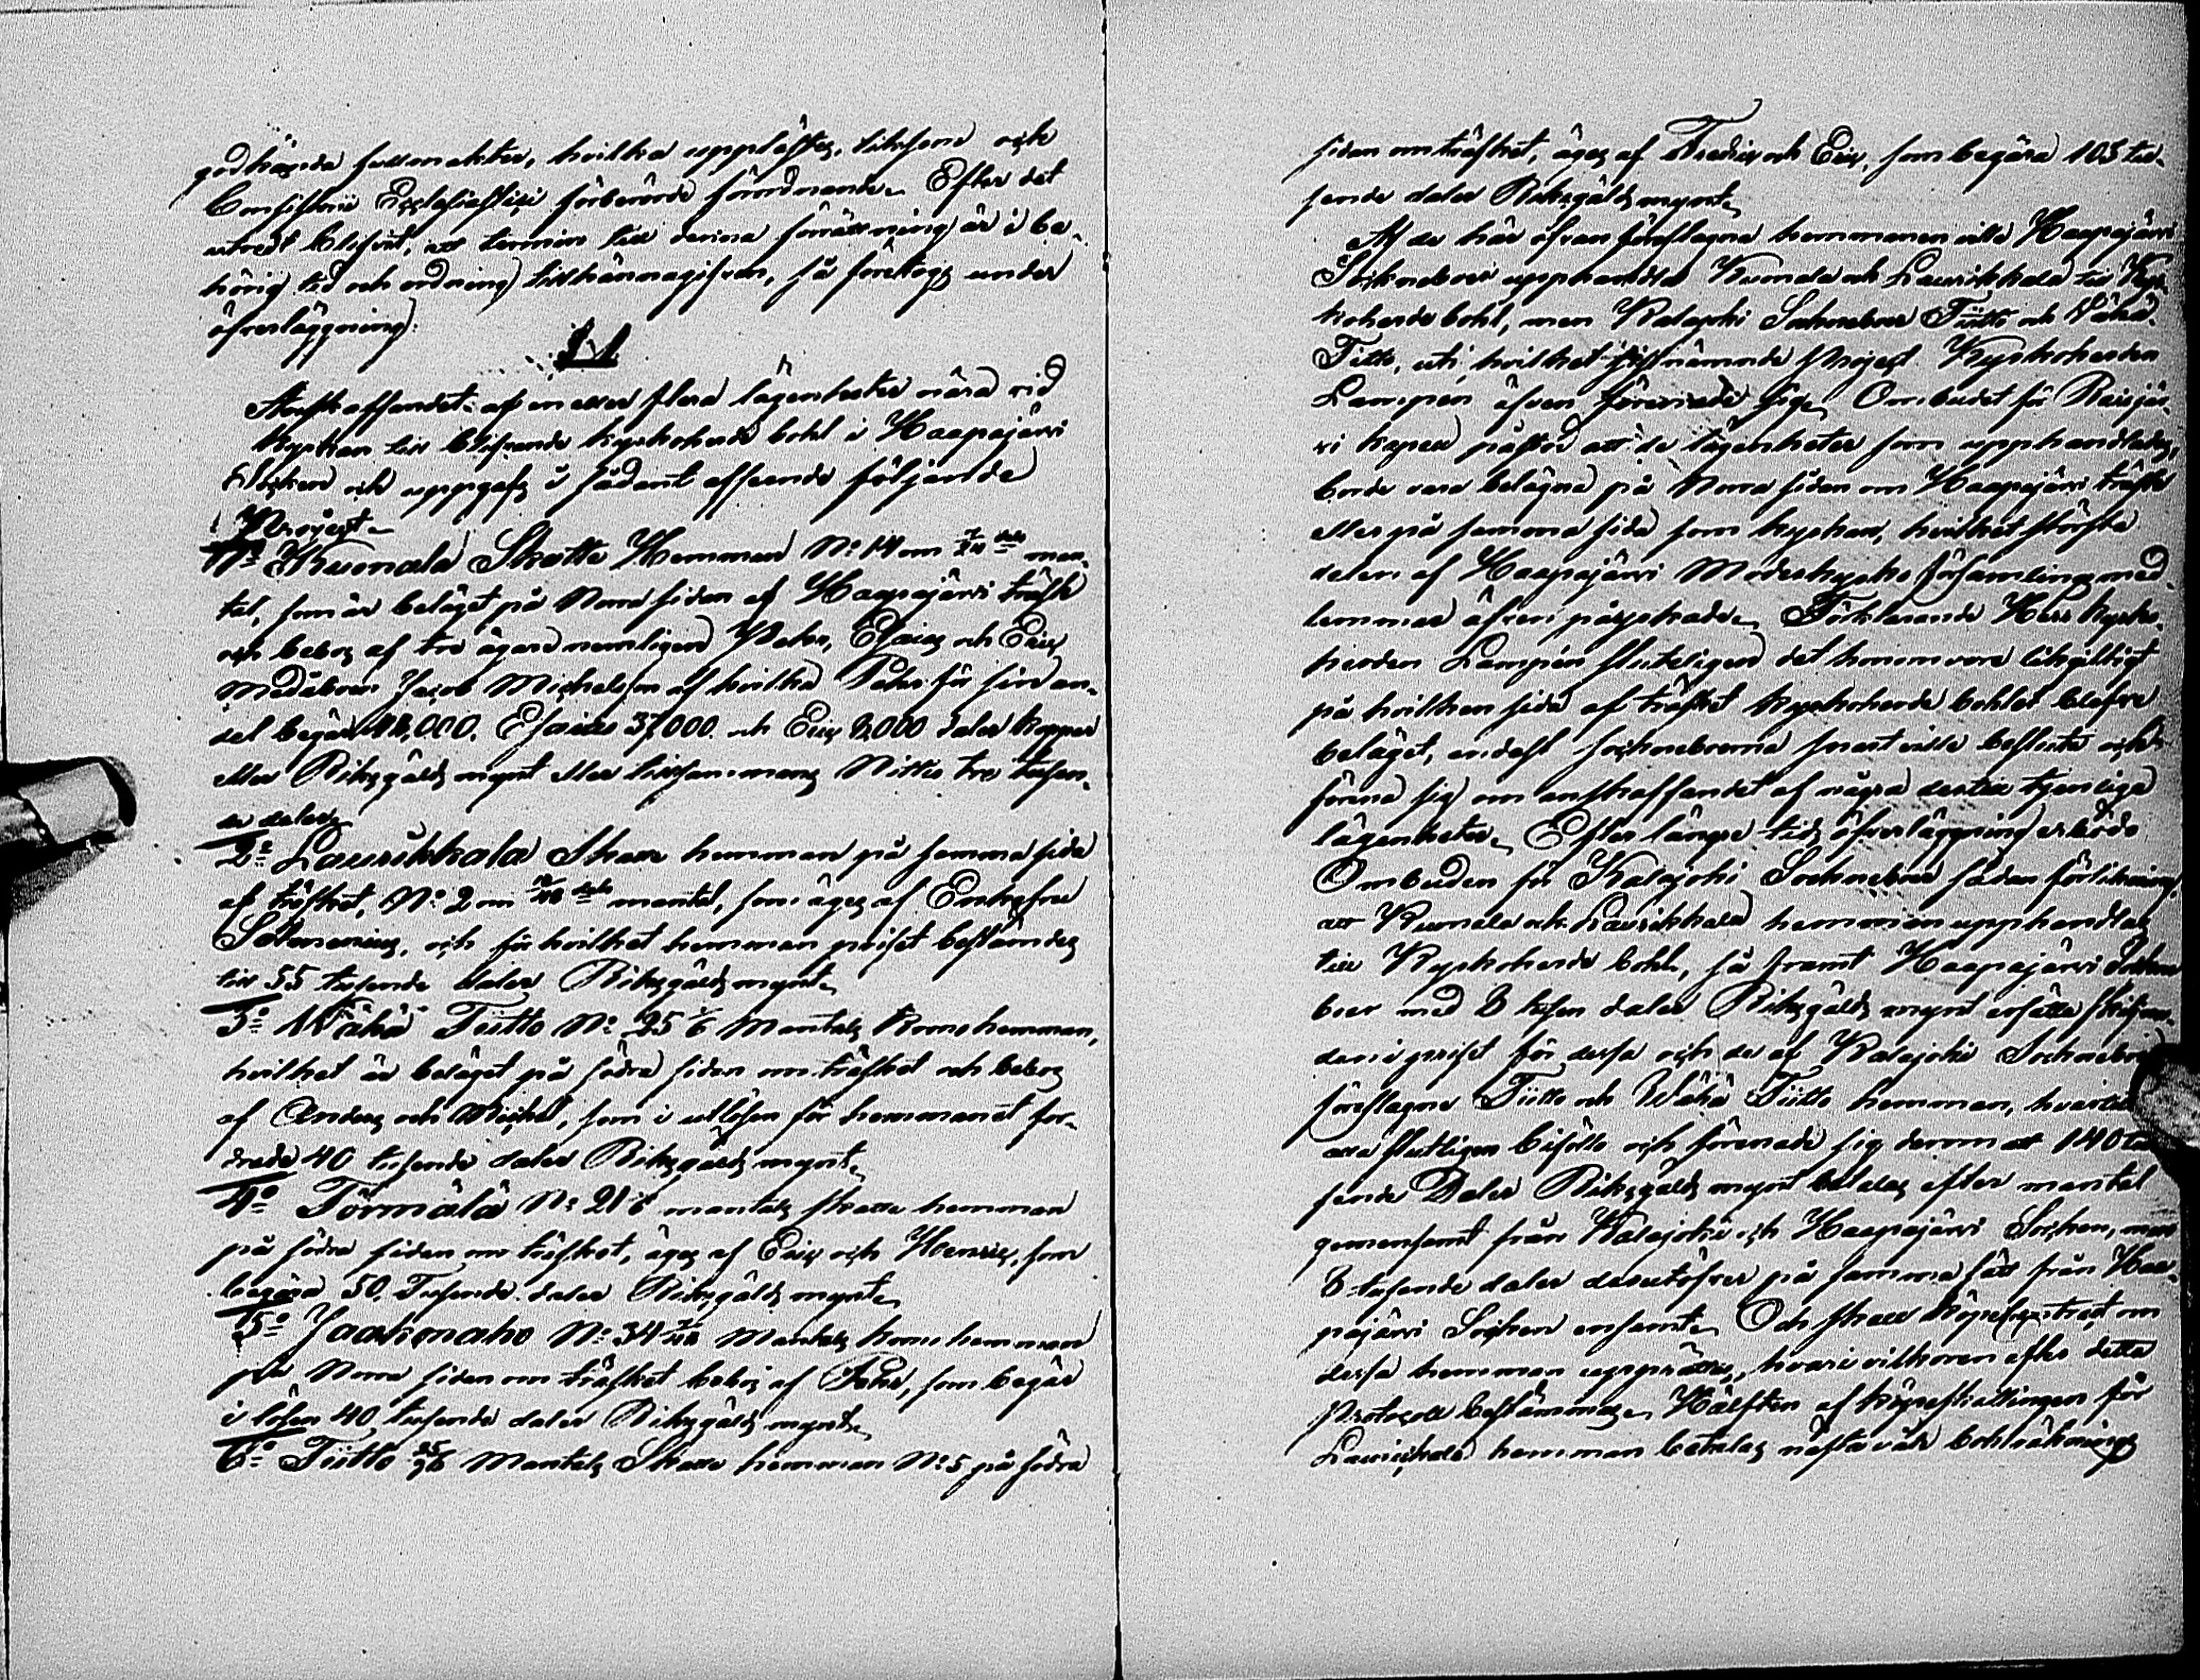 godkända fullmakter, hvilka upplästes, liksom och
Consistorii Ecclesiastici förberörde förordnande. Efter det
utredt blifvit, att termin till denna förrättning är i be-
hörig tid och ordning tillkännagifven, så företogs under
öfverläggning:
Anskaffandet af en eller flera lägenheter nära vid
kyrkan till blifvande kyrkoherde bohl i Haapajärvi
Socken och uppgafs i sådant afseende följande
Project.
1:o Kumala Skatte Hemman N:o 14 om 7/24 dels man-
tal, som är beläget på Norra sidan af Haapajärvi träsk
och bebos af tre ägare nemligen Peter, Esaias och Eric
Madsäbron Jacob Michelsson af hvilka Peter för sin an-
del begär 48,000. Esaias 37,000. och Eric 8,000 daler kopper
eller Riksgälds mynt eller tillsammans Nittio tre tusen-
de daler.
2:o Laurikkala Skatte hemman på samma sida
af träsket, N:o 2 om /48 dels mantal, som äges af Enkefru
Salmenius, och för hvilket hemman priset bestämdes
till 55 tusende daler Riksgälds mynt.
3:o Wähä Tiitto N:o 25 1/6 Mantals Krono hemman,
hvilket är beläget på södra sidan om träsket och bebos
af Anders och Michel, som i utlösen för hemmanet for-
drade 40 tusende daler Riksgälds mynt.
4:o Törmälä N:o 21 1/6 mantals skatte hemman
på södra sidan om träsket, äges af Eric och Henric, som
begära 50. Tusende daler Riksgälds mynt.
5:o Jaakonaho N:o 34 7/48 Mantals krono hemman
på Norra sidan om träsket bebos af Peter, som begär
i lösen 40 tusende daler Riksgälds mynt.
6:o Tiitto 25/96 Mantals Skatte hemman N:o 5 på södra
sidan om träsket, äges af Fredric och Eric, som begära 105 tu-
sende daler Riksgälds mynt.
Af de här ofvan föreslagna hemmanen ville Haapajärvi
Socknebor upphandla Kumala och Laurikkala till Kyr-
koherde bohl, men Kalajoki Socknebor Tiitto och Wähä
Tiitto, uti hvilket sistnämnde project Kyrkoherden
Lampén äfven förenade sig. Ombudet för Reisjär-
vi kapell påstod att de lägenheter som upphandlades,
borde vara belägna på Norra sidan om Haapajärvi träsk
eller på samma sida som kyrkan, hvilket största
delen af Haapajärvi Moderkyrko församlings med-
lemmar äfven påyrkade. Förklarande Herr Kyrko-
herden Lampén sluteligen det honom vore likgiltigt
på hvilken sida af träsket Kyrkoherde bohlet blefve
beläget, endast sockneborne snart ville besluta och
förena sig om anskaffandet af några dertill tjenliga
lägenheter. Efter längre tids öfverläggning erböd
Ombuden för Kalajoki Socknebor sådan förlikning,
att Kumala och Laurikkala hemman upphandlas
till Kyrkoherde bohl, så framt Haapajärvi Sockne
boer med 8 tusen daler Riksgälds mynt ersätta skilnan-
den i priset för dessa och de af Kalajoki Socknebor
föreslagne Tiitto och Wähä Tiitto hemman, hvartill
alla slutligen biföllo och förenade sig derom att 140 tu-
sende Daler Riksgälds mynt betalas efter mantal
gemensamt från Kalajoki och Haapajärvi Socken, men
8 tusende daler derutöfver på samma sätt från Haa-
pajärvi Socken ensamt. Och skall köpe contract om
dessa hemman upprättas, hvari vilkoren efter detta
Protocoll bestämmas. Hälften af köpeskillingen för
Laurikkala hemman betalas nästa vår bohlräkning